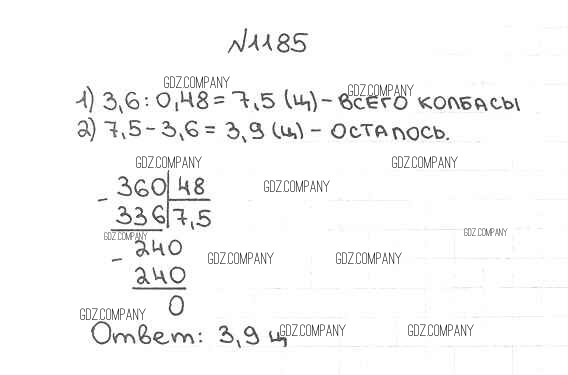 №1185
GDZ.COMPANY
GDZ.COMPANY
1) 3,6 : 0,48 = 7,5 (ц) – ВСЕГО КОЛБАСЫ
2) 7,5 – 3,6 = 3,9 (ц) – ОСТАЛОСЬ.
GDZ.COMPANY GDZ.COMPANY
- 360 48
GDZ.COMPANY
336 7,5
GDZ.COMPANY GDZ.COMPANY
- 240
GDZ.COMPANY GDZ.COMPANY
240
0
GDZ.COMPANY
Ответ: 3,9 ц
GDZ.COMPANY GDZ.COMPANY